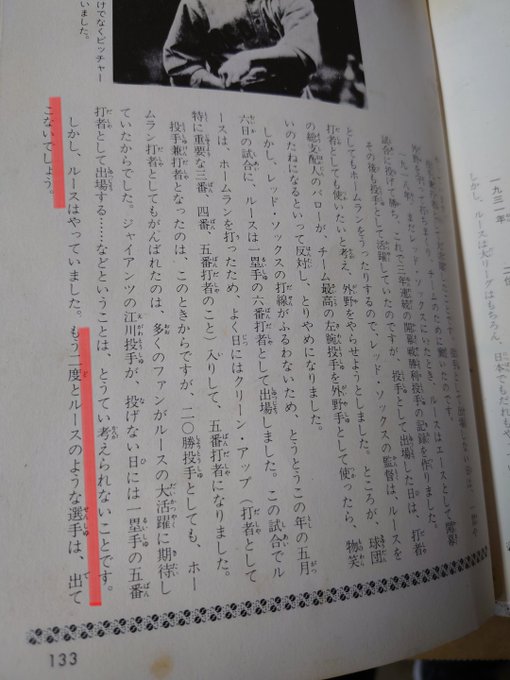 一九三一年
しかし、ルースは大リーグはもちろん、日本でもだれもや
一九一八年、まだレッド・ソックスにいたとき、ルースはエースとして開幕
試合に投げて勝ち、これで三年連続の開幕戦勝利投手の記録を作りました。
その後も投手として活躍していたのですが、投手として出場した日は、打者
としてもホームランをうったりするので、レッド・ソックスの監督は、ルースを
打者としても使いたいと考え、外野をやらせようとしました。ところが、球団
の総支配人のバローが、チーム最高の左腕投手を外野手として使ったら、物笑
いのたねになるといって反対し、とりやめになりました。
しかし、レッド・ソックスの打線がふるわないため、とうとうこの年の五月
六日の試合に、ルースは一塁手の六番打者として出場しました。この試合でル
ースは、ホームランを打ったため、よく日にはクリーン・アップ（打者として
特に重要な三番、四番、五番打者のこと）入りして、五番打者になりました。
投手兼打者となったのは、このときからですが、二〇勝投手としても、ホー
ムラン打者としてもがんばれたのは、多くのファンがルースの大活躍に期待し
ていたからでした。ジャイアンツの江川投手が、投げない日には一塁手の五番
打者として出場する……などということは、とうてい考えられないことです。
しかし、ルースはやっていました。もう二度とルースのような選手は、出て
こないでしょう。
けでなくピッチャー
いました。
133